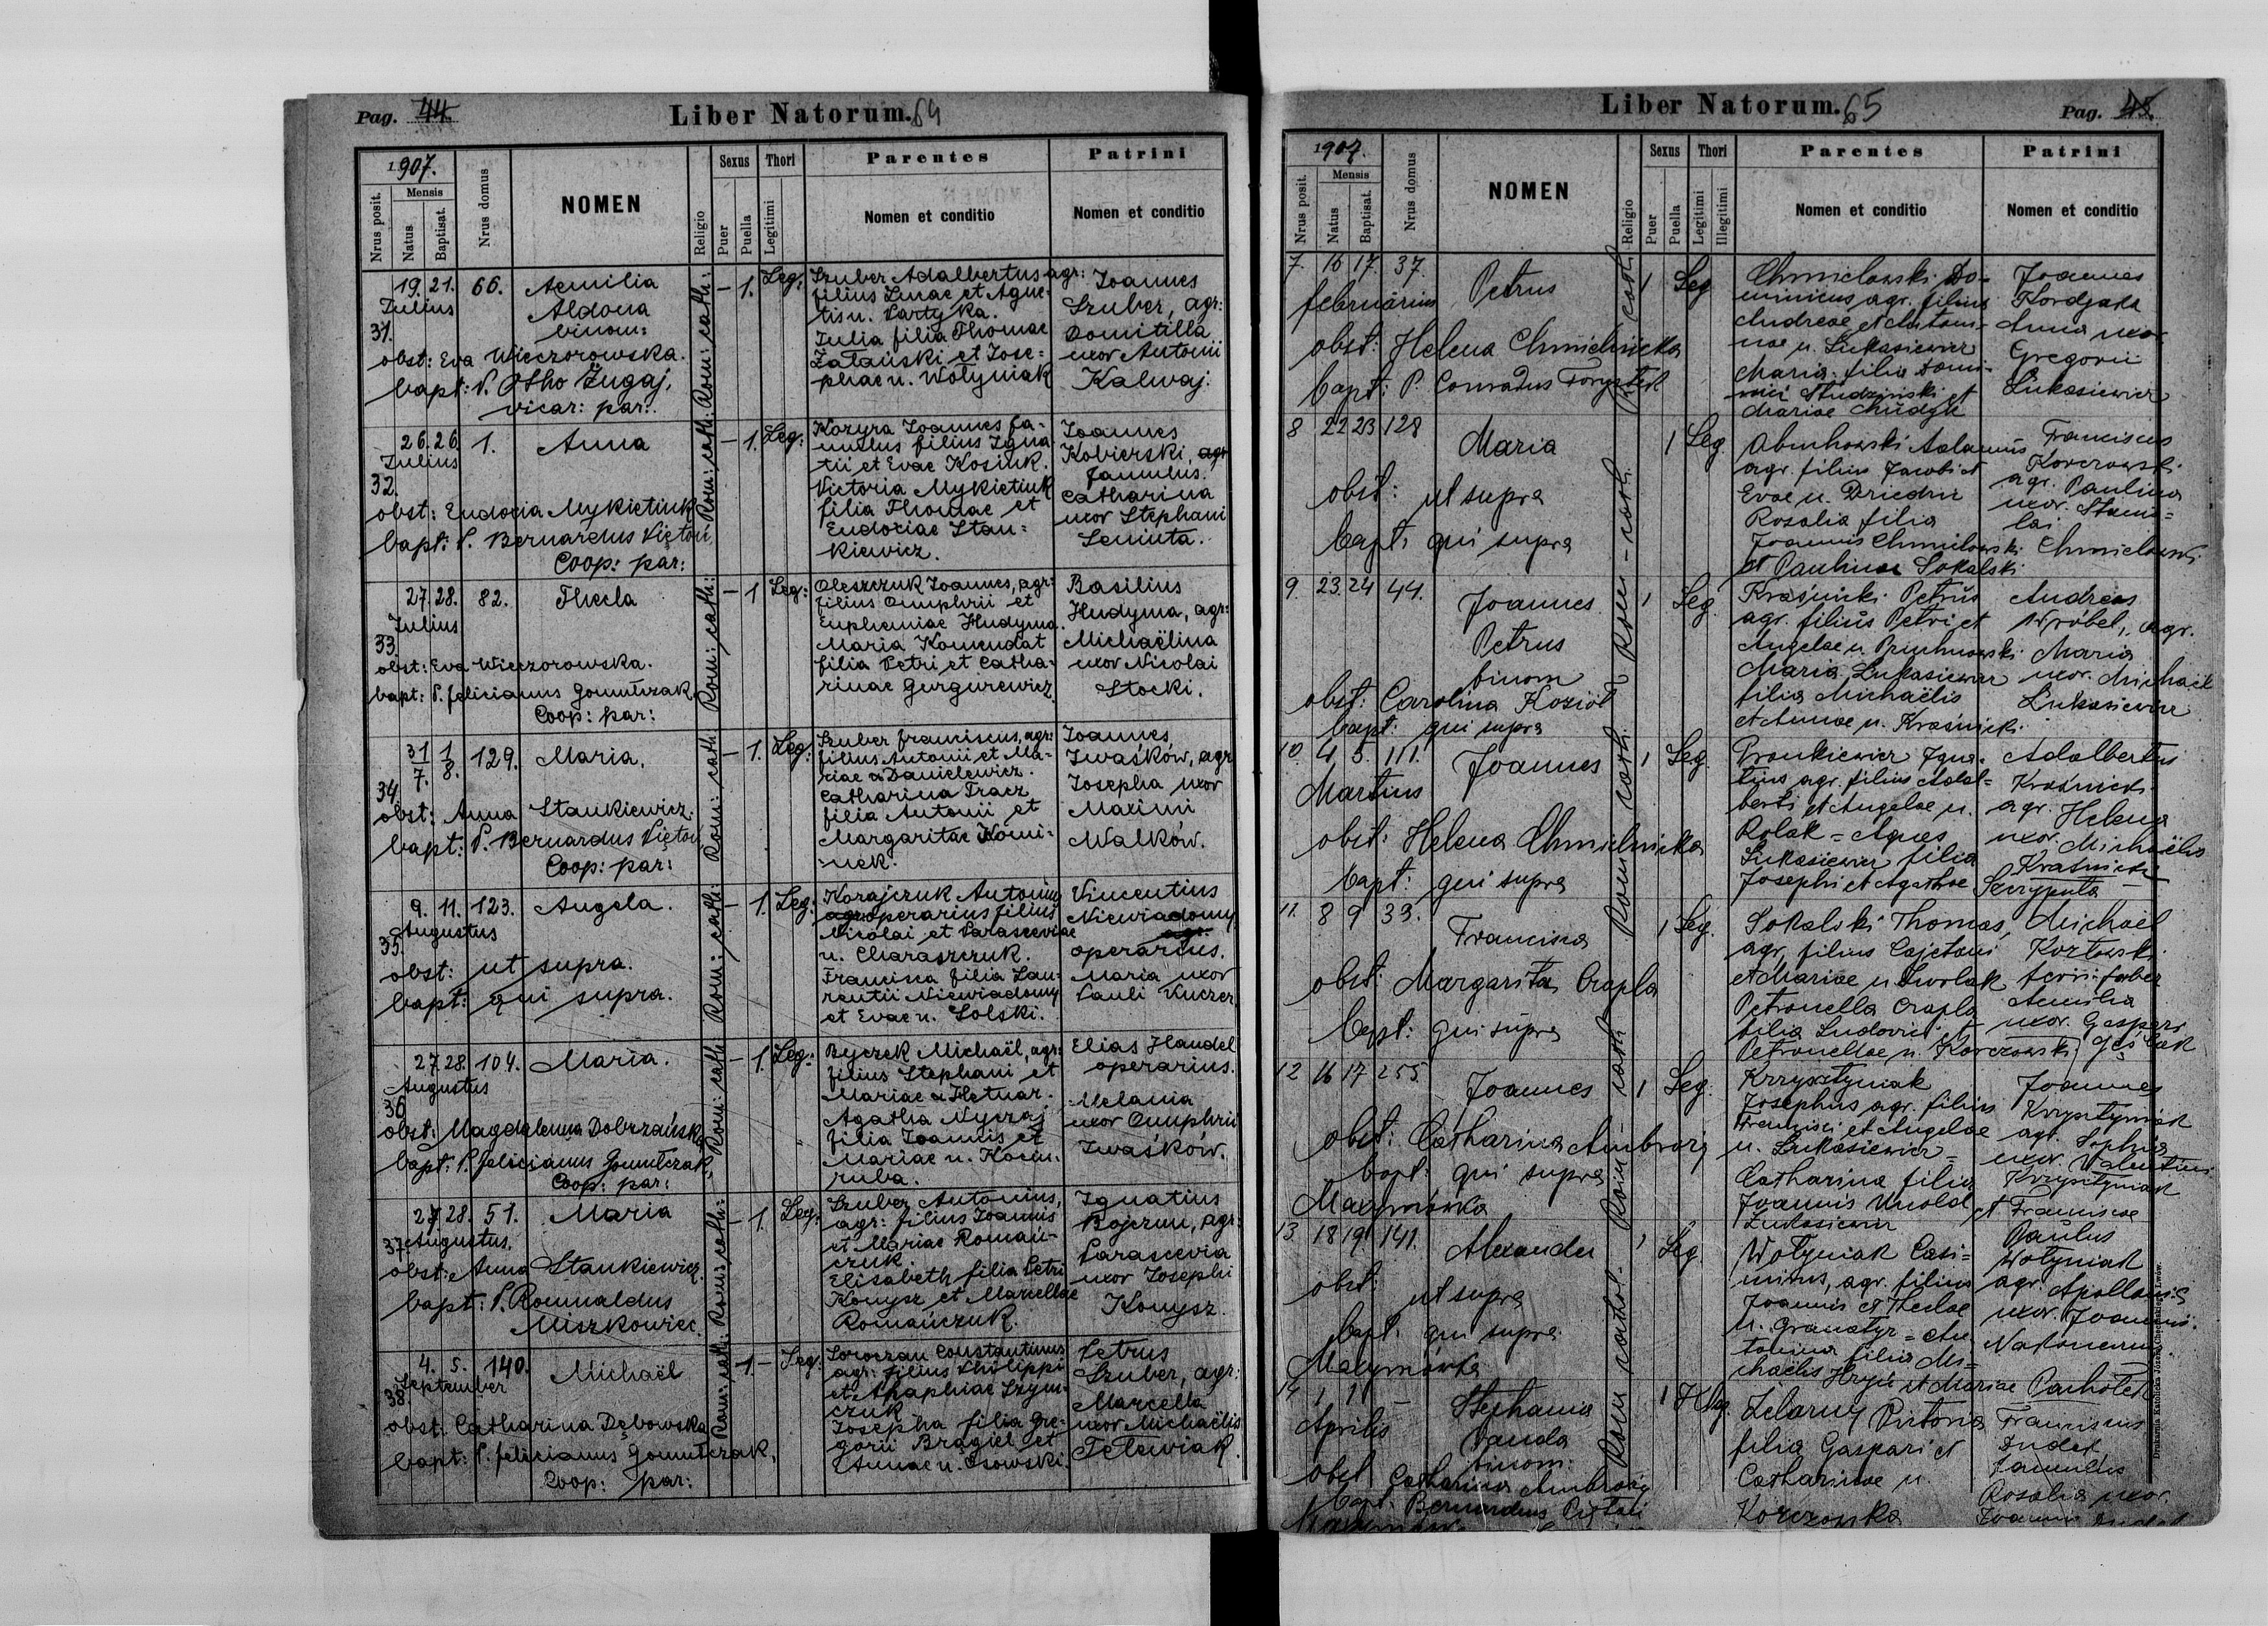 Pag. 44.
Liber Natorum. 64
1907.
Nrus posit.
Mensis
Natus
Baptisat.
Nrus domus
NOMEN
Religio
Sexus
Puer
Puella
Thori
Legitimi
Parentes
Nomen et conditio
Patrini
Nomen et conditio
19. 21. 66. Aemilia
Julius Aldona
31. binom:
obst: Eva Wieczorowska.
bapt: P. Otho Żugaj,
vicar: par:
Rom: cath:
– 1. Leg:
Szuber Adalbertus agr:
filius Lucae et Agne-
tis u. Partyka.
Julia filia Thomae
Załański et Jose-
phae u. Wołyniak
Joannes
Szuber, agr:
Domitilla
uxor Antonii
Kalwaj.
26. 26. 1. Anna
Julius
32.
obst: Eudoxia Mykietiuk
bapt: P. Bernardus Piętoń,
Coop: par:
Rom: cath:
– 1. Leg:
Kozyra Joannes fa-
mulus filius Igna-
tii et Evae Kosiuk.
Victoria Mykietiuk
filia Thomae et
Eudoxiae Stan-
kiewicz.
Joannes
Kobierski, agr
famulus.
Catharina
uxor Stephani
Seniuta.
27. 28. 82. Thecla
Julius
33.
obst: Eva Wieczorowska.
bapt: P. Felicianus Gomułczak,
Coop: par:
Rom: cath:
– 1 Leg:
Oleszczuk Joannes, agr:
filius Onuphrii et
Euphemiae Hudyma.
Maria Komendat
filia Petri et Catha-
rinae Gurgurewicz.
Basilius
Hudyma, agr:
Michaëlina
uxor Nicolai
Stocki.
31/7. 1/8. 129. Maria.
34.
obst: Anna Stankiewicz.
bapt: P. Bernardus Piętoń
Coop: par:
Rom: cath:
– 1. Leg:
Szuber Franciscus, agr:
filius Antonii et Ma-
riae a Danielewicz.
Catharina Tracz
filia Antonii et
Margaritae Komi-
nek.
Joannes
Iwaśków, agr
Josepha uxor
Maximi
Walków.
9. 11. 123. Angela.
Augustus
35.
obst: ut supra.
bapt: qui supra.
Rom: cath:
– 1. Leg:
Korajczuk Antonius
agr operarius filius
Nicolai et Parasceviae
u. Charaszczuk.
Francisca filia Lau-
rentii Niewiadomy
et Evae u. Solski.
Vincentius
Niewiadomy
agr.
operarius.
Maria uxor
Pauli Kuczer.
27. 28. 104. Maria.
Augustus
36
obst: Magdalena Dobrzańska
bapt: P. Felicianus Gomułczak,
Coop: par:
Rom: cath:
– 1. Leg:
Byczek Michaël, agr:
filius Stephani et
Mariae a Hetnar.
Agatha Nyczaj
filia Joannis et
Mariae u. Kociu-
ruba.
Elias Handel
operarius.
Melania
uxor Onuphrii
Iwaśków.
27 28. 51. Maria
37. Augustus.
obst: Anna Stankiewicz.
bapt: P. Romualdus
Miszkowiec.
Rom: cath:
– 1. Leg:
Szuber Antonius,
agr: filius Joannis
et Mariae Romań-
czuk.
Elisabeth filia Petri
Konysz et Marcellae
Romańczuk.
Ignatius
Bojczun, agr:
Parascevia
uxor Josephi
Konysz.
4. 5. 140. Michaël
September
38.
obst: Catharina Dębowska
bapt: P. Felicianus Gomułczak,
Coop: par:
Rom: cath:
1 – Leg:
Soroczan Constantinus
agr: filius Philippi
et Ahaphiae Szym-
czuk
Josepha filia Gre-
gorii Brągiel et
Annae u. Osowski.
Petrus
Szuber, agr:
Marcella
uxor Michaëlis
Tetewiak.
Liber Natorum. 65
Pag. 45.
1907.
Nrus posit.
Mensis
Natus
Baptisat.
Nrus domus
NOMEN
Religio
Sexus
Puer
Puella
Thori
Legitimi
Illegitimi
Parentes
Nomen et conditio
Patrini
Nomen et conditio
7. 16 17. 37. Petrus
februarius
obst: Helena Chmielnicka
bapt: P. Conradus
Rom cath
1 Leg
Chmielowski Do-
minicus agr. filius
Andreae et Anton-
nae u. Łukasiewicz
Maria filia Domi-
nici Studziński et
Mariae Chudyk
Joannes
Anna uxor
Gregorii
Łukasiewicz
8 22 23 128 Maria
obst: ut supra
bapt: qui supra
Rom – cath.
1 Leg.
Adamus
agr. filius Jacobi et
Evae u. Dziedzic
Rosalia filia
Joannis Chmielowski
et Paulinae Sokalski
Franciscus
Korczowski
agr. Paulina
uxor. Stanis-
lai
Chmielowski
9. 23. 24 44. Joannes
Petrus
binom
obst: Carolina Kozioł
bapt: qui supra
1 Leg.
Kraśnicki Petrus
agr. filius Petri et
Angelae u.
Maria Łukasiewicz
filia Michaëlis
et Annae u. Kraśnicki.
Andreas
Wróbel, agr.
Maria
uxor. Michaël
Łukasiewicz
10. 4. 5. 111. Joannes
Martius
obst: Helena Chmielnicka
bapt: qui supra
Rom cath.
1 Leg.
Fronkiewicz Igna-
tius agr. filius Adal-
berti et Angelae u.
Rolak – Agnes
Łukasiewicz filia
Josephi et Agathae Skrzypuła
Adalbertus
Kraśnicki
agr. Helena
uxor. Michaëlis
Kraśnicki
11. 8 9 33. Francisca
obst: Margarita Czapla
bapt: qui supra
1 Leg.
Sokalski Thomas,
agr. filius Cajetani
et Mariae u. Dwolak
Petronella Czapla
filia Ludovici et
Petronellae u. Korczowski
Michaël
Kozłowski
faber
Aemilia
uxor. Gaspari
12 16 17 255 Joannes
obst: Catharina Ambroży
bapt: qui supra
Maxymówka
Rom cath
1 Leg.
Krzyształyniak
Josephus agr. filius
et Angelae
u. Łukasiewicz –
Catharina filia
Joannis Unold
et Franciscae
Łukasiewicz
Joannes
agr. Sophia
uxor. Valentini
13. 18 19. 141. Alexander
obst: ut supra
bapt. qui supra
Maxymówka
1 Leg.
Wołyniak Casi-
mirus, agr. filius
Joannis et Theclae
u. Granatyr – An-
tonina filia Mi-
chaelis Hryć et Mariae Pachołek
Paulus
Wołyniak
agr. Apollonia
uxor. Joannis
14. 1 1 – Stephania
Aprilis Vanda
binom:
obst Catharina Ambroży
bapt. Bernardus Piętoń
Rom cathol
1 Illeg.
Zelazny Victoria
filia Gaspari et
Catharinae u.
Franciscus
Dudek
famulus
Rosalia uxor.
Drukarnia Katolicka Józefa Chęcińskiego, Lwów.